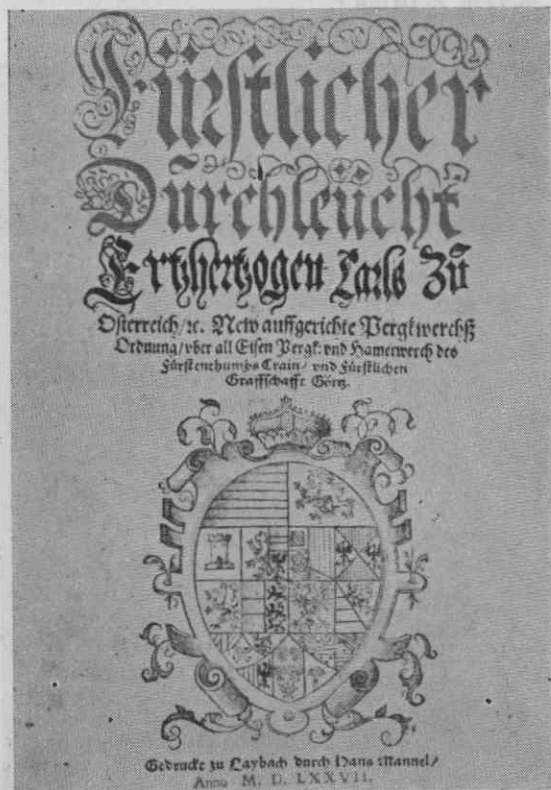 Fürstlicher
Durchleücht
Ertzhertzogen Carls Zů
Osterreich/ ꝛc. New auffgerichte Pergkwerchß
Ordnung/ vber all Eisen Pergk: vnd Hamerwerch des
Fürstenthumbs Crain/ vnd Fürstlichen
Graffschafft Görtz.
Gedruckt zu Laybach durch Hans Mannel/
Anno M. D. LXXVII.